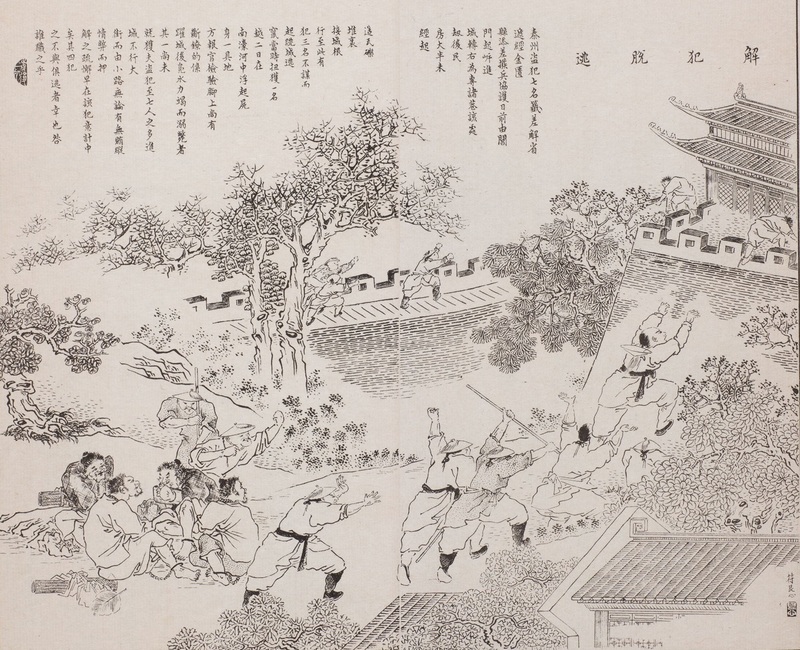 解犯脫逃
泰州盜犯七名籤差解省
過經金匱
縣添差撥兵協護日前由閶
門起岸進
城轉右為專諸巷該處
後民
房大半未
經起
造瓦礫
堆裏
接城根
行至此有
犯三名不謀而
起陡城逃
竄當時扭獲一名
越二日在
南濠河中浮起屍
身一具地
方報官檢驗腳上尚有
斷鐐的係
躍城後力竭而溺斃者
其一尚未
獲夫盜犯至七人之多進
城不行大
街而由小路無論有無賄縱
情弊而押
解之疏懈早在該犯意計中
矣其四犯
之不與俱逃者幸也咎
誰職之乎
符艮心